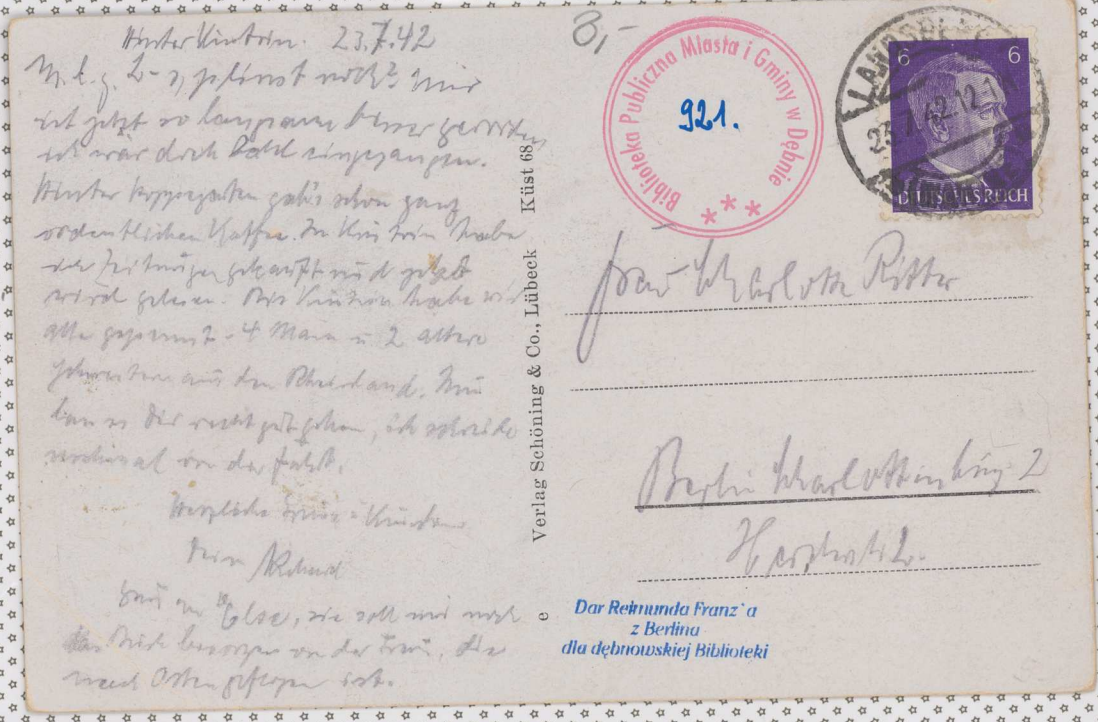 Hinter Küstrin. 23.7.42
jetzt so langsam
ich wär doch bald eingegangen.
Hinter gab's schon ganz
ordentlichen Kaffee. In Küstrin habe
ich Zeitungen gekauft und jetzt
wird gelesen. Bis Küstrin habe wir
alle gepennt - 4 Mann u 2 ältere
Schwestern aus dem Rheinland. Nun
lass es Dir recht gut gehen, ich schreibe
nochmal von der Fahrt.
Herzliche Grüsse u Küsse
Dein Richard
Sag Else, sie soll mir noch
das Buch besorgen von der Frau, die
nach Osten geflogen ist.
8,-
Biblioteka Publiczna Miasta i Gminy w Dębnie
921.
LANDSBERG
23.7.42.12
6 6
DEUTSCHES REICH
Verlag Schöning & Co., Lübeck Küst 68
e
Frau Charlotte Ritter
Berlin Charlottenburg 2
Dar Reimunda Franz`a
z Berlina
dla dębnowskiej Biblioteki